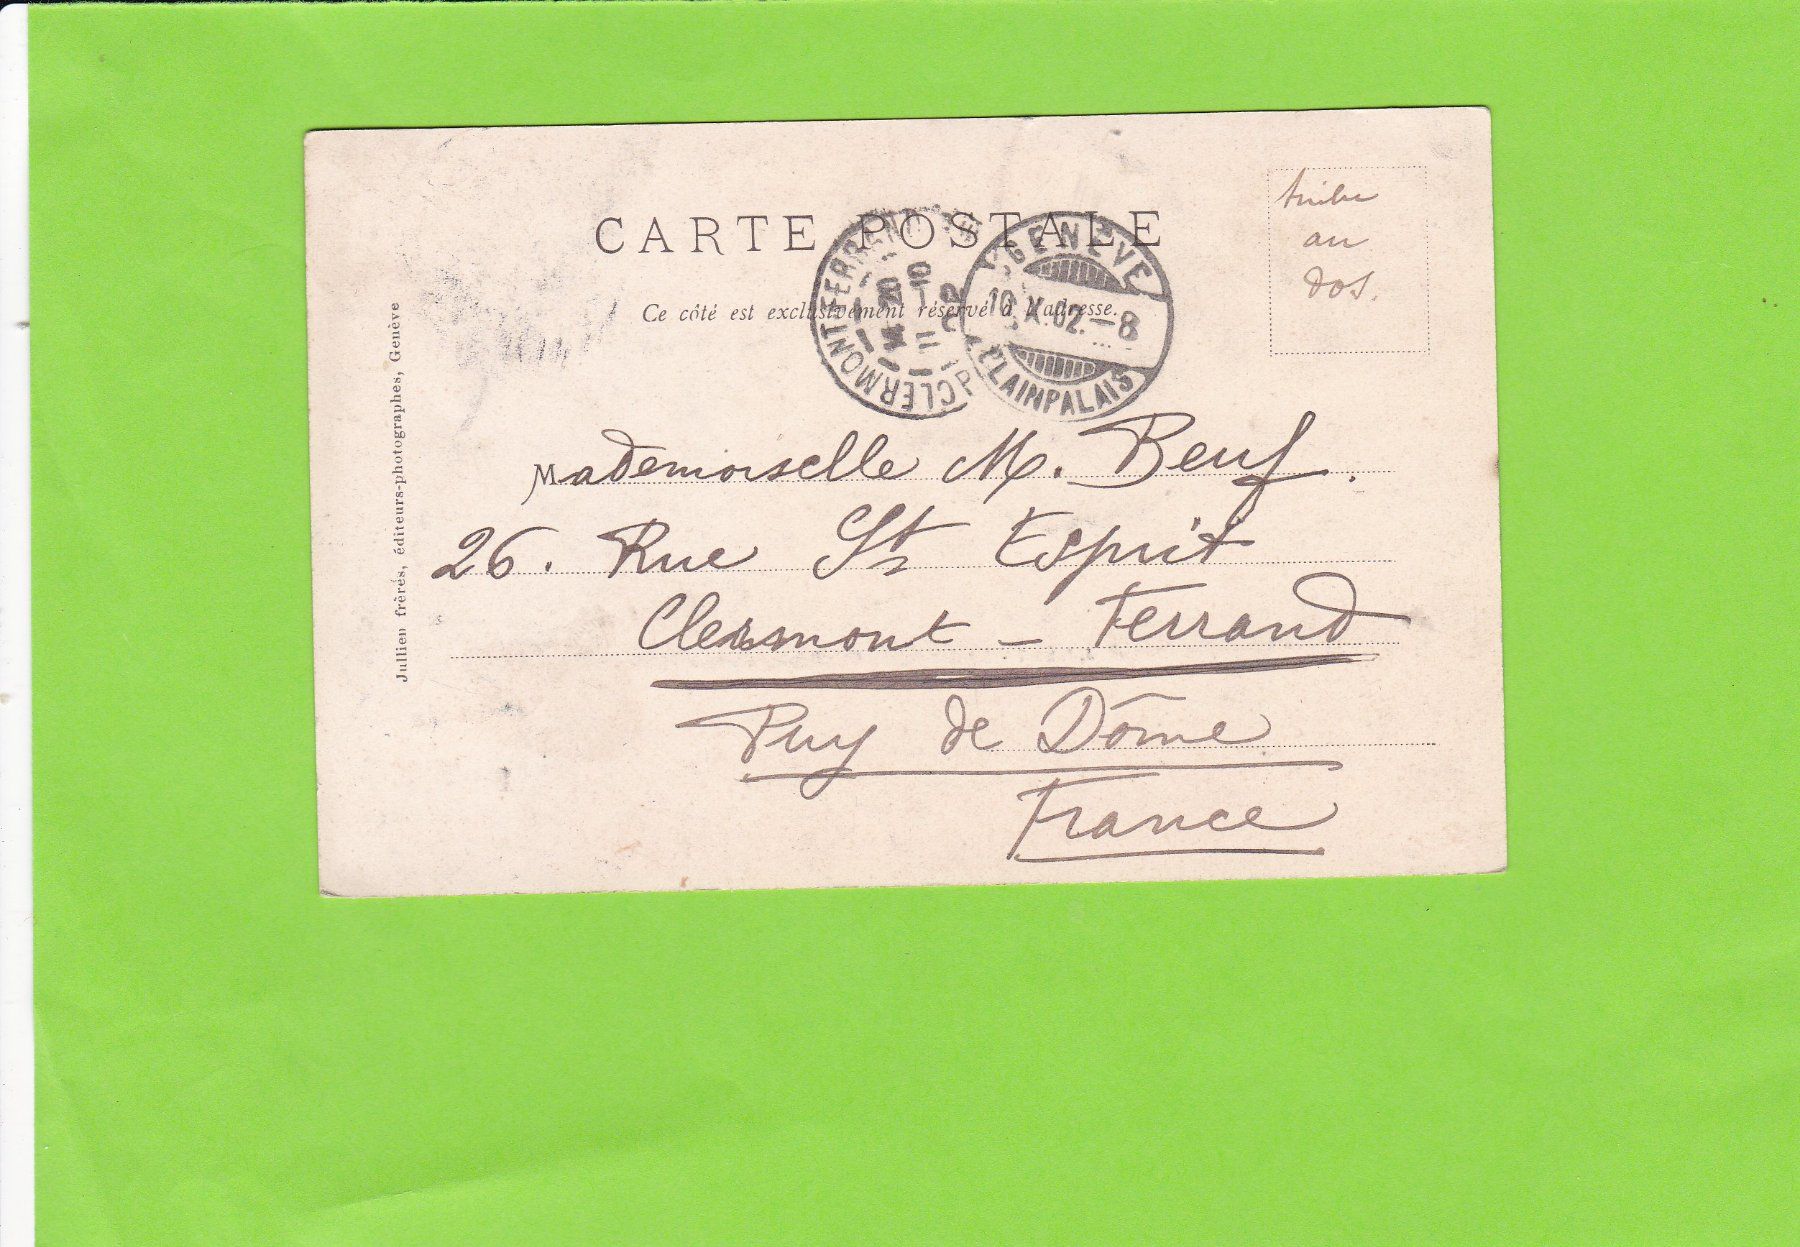 CARTE POSTALE
Ce côté est exclusivement réservé à l'adresse.
timbre
au
dos.
GENÈVE
10.X.02.–8
PLAINPALAIS
CLERMONT-FERRAND
Mademoiselle M. Beuf.
26. Rue St Esprit
Clermont - Ferrand
Puy de Dôme
France
Jullien frères, éditeurs-photographes, Genève